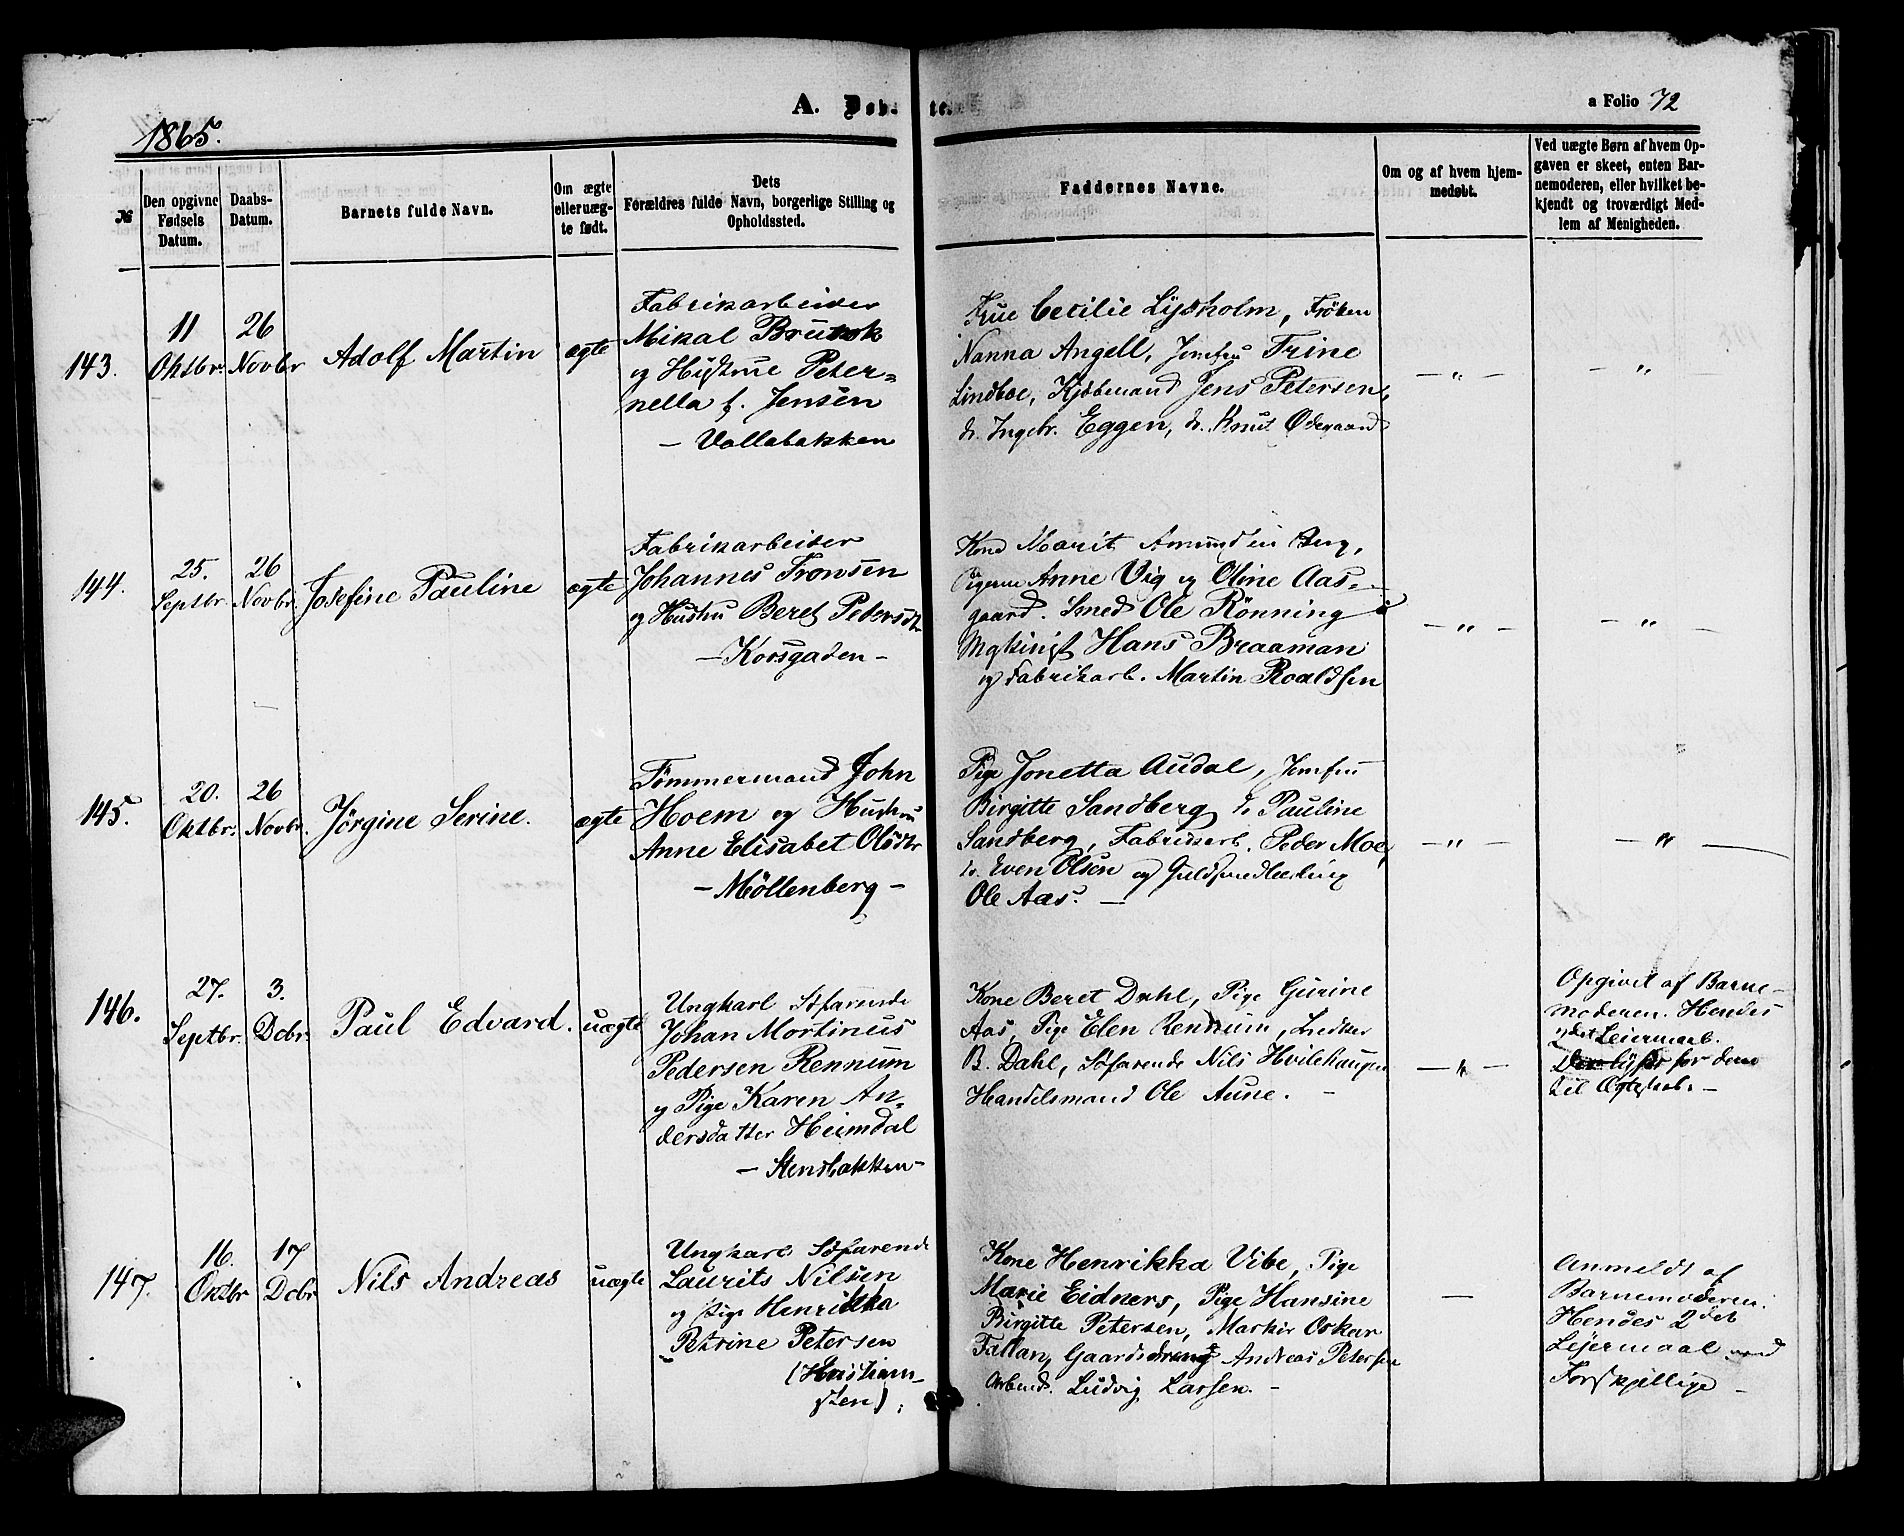 1865.
A. Døbte.
a Folio 72
№
Den opgivne
Fødsels
Datum.
Daabs-
Datum.
Barnets fulde Navn.
Om ægte
eller uæg-
te født.
Dets
Forældres fulde Navn, borgerlige Stilling og
Opholdssted.
Faddernes Navne.
Om og af hvem hjem-
medøbt.
Ved uægte Børn af hvem Op-
gaven er skeet, enten Bar-
nemoderen, eller hvilket be-
kjendt og troværdigt Med-
lem af Menigheden.
143.
11
Oktbr.
26
Novbr
Adolf Martin
ægte
Fabrikarbeider
Mikal
og Hustrue Peter=
nella f. Jensen
- Vollabakken
Frue Cecilie Lysholm, Frøken
Nanna Angell, Jomfru Trine
Lindboe, Kjøbmand Jens Petersen,
do. Ingebr. Eggen, do. Knut Ødegaard
- " -
- " -
144.
25.
Septbr.
26
Novbr.
Josefine Pauline
ægte
Fabrikarbeider
Johannes Tronsen
og Hustru Beret Pedersdtr
- Korsgaden -
Kone Marit Berg,
Pigerne Anne Vig og Oline Aas-
gaard. Smed Ole Rönning
Hans Braaman
og Fabrikarb. Martin Roaldsen
- " -
- " -
145.
20.
Oktbr.
26
Novbr.
Jörgine Serine.
ægte
Tømmermand John
Hoem og Hustru
Anne Elisabet Olsdtr
- Möllenberg -
Pige Jonetta Audal, Jomfru
Birgitte Sandberg do Pauline
Sandberg, Fabrikarb. Peder Moe,
do. Even Olsen og Guldsmedlærling
Ole Aas. -
- " -
- " -
146.
27.
Septbr.
3.
Dcbr.
Paul Edvard.
uægte
Ungkarl Søfarende
Johan Mortinus
Pedersen Rennum
og Pige Karen An=
dersdatter Heimdal
- Stensbakken -
Kone Beret Dahl, Pige Gurine
Aas, Pige Elen Rennum,
B. Dahl, Søfarende Nils Hvilehaugen
Handelsmand Ole Aune. -
- " -
Opgivet af Barne-
moderen. Hendes
2det Leiermaal.
Der lyses for dem
til Ægteskab. -
147.
16.
Oktbr
17
Dcbr
Nils Andreas
uægte
Ungkarl Søfarende
Laurits Nilsen
og Pige Henrikka
Petrine Petersen
(Kristian-
sten).
Kone Henrikka Vibe, Pige
Marie Eidners, Pige Hansine
Birgitte Petersen, Oskar
Fallan, Gaardsdreng Andreas Petersen
Arbmd. Ludvig Larsen. -
-
Anmeldt af
Barnemoderen.
Hendes 2det
Lejermaal med
Forskjellige -